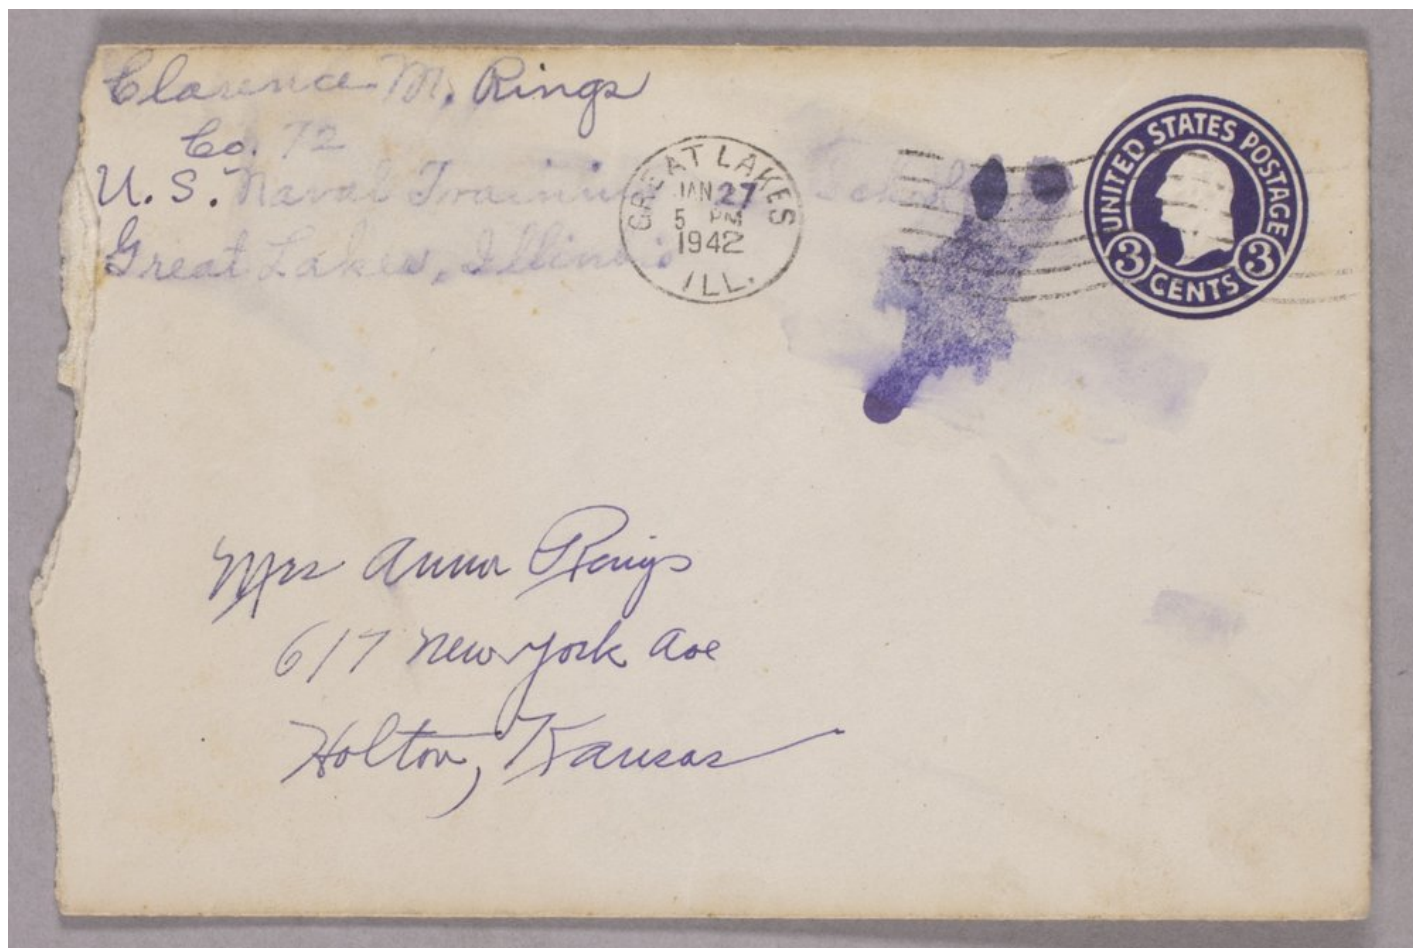 Clarence M. Rings
Co. 72
U. S. Naval Training School
Great Lakes, Illinois
GREAT LAKES
JAN 27
5 PM
1942
ILL.
UNITED STATES POSTAGE
3 CENTS 3
Mrs Anna Rings
617 New York Ave
Holton, Kansas